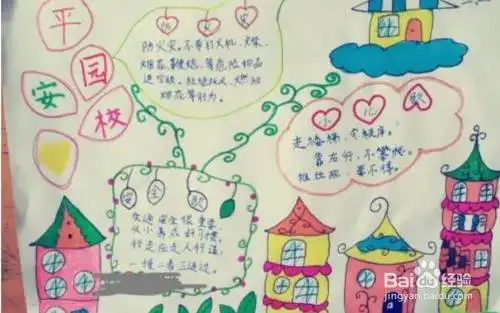 平
安 园
校
防火灾。不带打火机、火柴、
烟花鞭炮、等危险物品
进学校。杜绝玩火、燃放
烟花等行为。
小 儿 歌
走楼梯,守秩序。
靠右行,不攀爬。
推拉跑,要不得。
安 全 歌
交通安全很重要
从小养成好习惯
行走应走人行道
一慢二看三通过。
Baidu 经验
jingyan.baidu.com